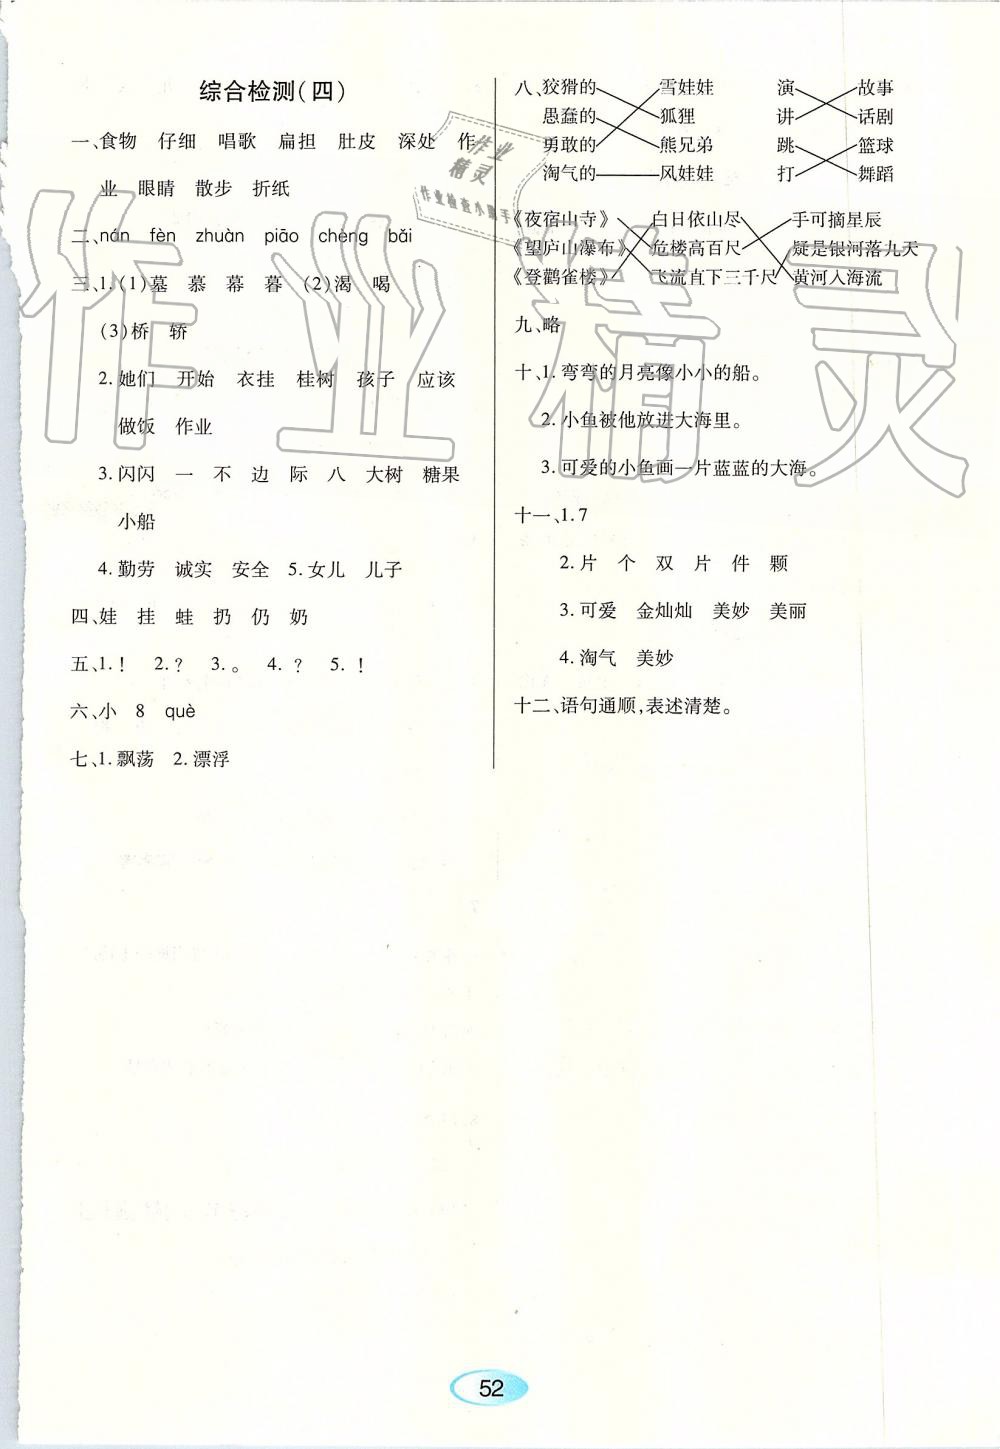 综合检测(四)
一、食物 仔细 唱歌 扁担 肚皮 深处 作
业 眼睛 散步 折纸
二、nán fèn zhuàn piāo chéng bǎi
三、1.(1)墓 慕 幕 暮 (2)渴 喝
(3)桥 轿
2.她们 开始 衣挂 桂树 孩子 应该
做饭 作业
3.闪闪 一 不 边 际 八 大树 糖果
小船
4.勤劳 诚实 安全 5.女儿 儿子
四、娃 挂 蛙 扔 仍 奶
五、1.！ 2.？ 3.。 4.？ 5.！
六、小 8 què
七、1.飘荡 2.漂浮
八、狡猾的 雪娃娃 演 故事
愚蠢的 狐狸 讲 话剧
勇敢的 熊兄弟 跳 篮球
淘气的 风娃娃 打 舞蹈
《夜宿山寺》 白日依山尽 手可摘星辰
《望庐山瀑布》 危楼高百尺 疑是银河落九天
《登鹳雀楼》 飞流直下三千尺 黄河入海流
九、略
十、1.弯弯的月亮像小小的船。
2.小鱼被他放进大海里。
3.可爱的小鱼画一片蓝蓝的大海。
十一、1.7
2.片 个 双 片 件 颗
3.可爱 金灿灿 美妙 美丽
4.淘气 美妙
十二、语句通顺,表述清楚。
作业
精灵
作业检查小助手
作业精灵
52